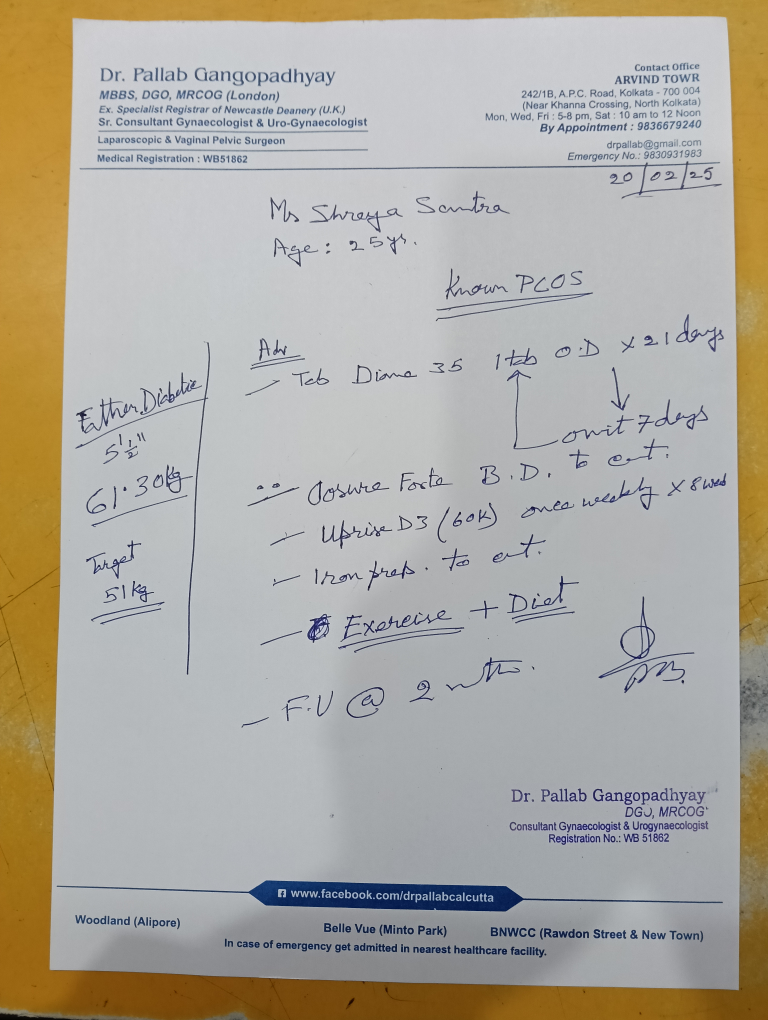 Dr. Pallab Gangopadhyay
MBBS, DGO, MRCOG (London)
Ex. Specialist Registrar of Newcastle Deanery (U.K.)
Sr. Consultant Gynaecologist & Uro-Gynaecologist
Laparoscopic & Vaginal Pelvic Surgeon
Medical Registration : WB51862
Contact Office
ARVIND TOWR
242/1B, A.P.C. Road, Kolkata - 700 004
(Near Khanna Crossing, North Kolkata)
Mon, Wed, Fri : 5-8 pm, Sat : 10 am to 12 Noon
By Appointment : 9836679240
drpallab@gmail.com
Emergency No.: 9830931983
20/02/25
Ms Shreya Santra
Age : 25 yr.
Known PCOS
Father Diabetic
5' 1½"
61.30kg
Target
51 kg
Adv
- Tab Diane 35 1 tab O.D x 21 days
omit 7 days
- Forte B.D. to cnt.
- Uprise D3 (60K) once weekly x 8
- Iron prep. to cnt.
- Exercise + Diet
- F.U @ 2 mths.
Dr. Pallab Gangopadhyay
DGO, MRCOG
Consultant Gynaecologist & Urogynaecologist
Registration No.: WB 51862
www.facebook.com/drpallabcalcutta
Woodland (Alipore)
Belle Vue (Minto Park)
BNWCC (Rawdon Street & New Town)
In case of emergency get admitted in nearest healthcare facility.